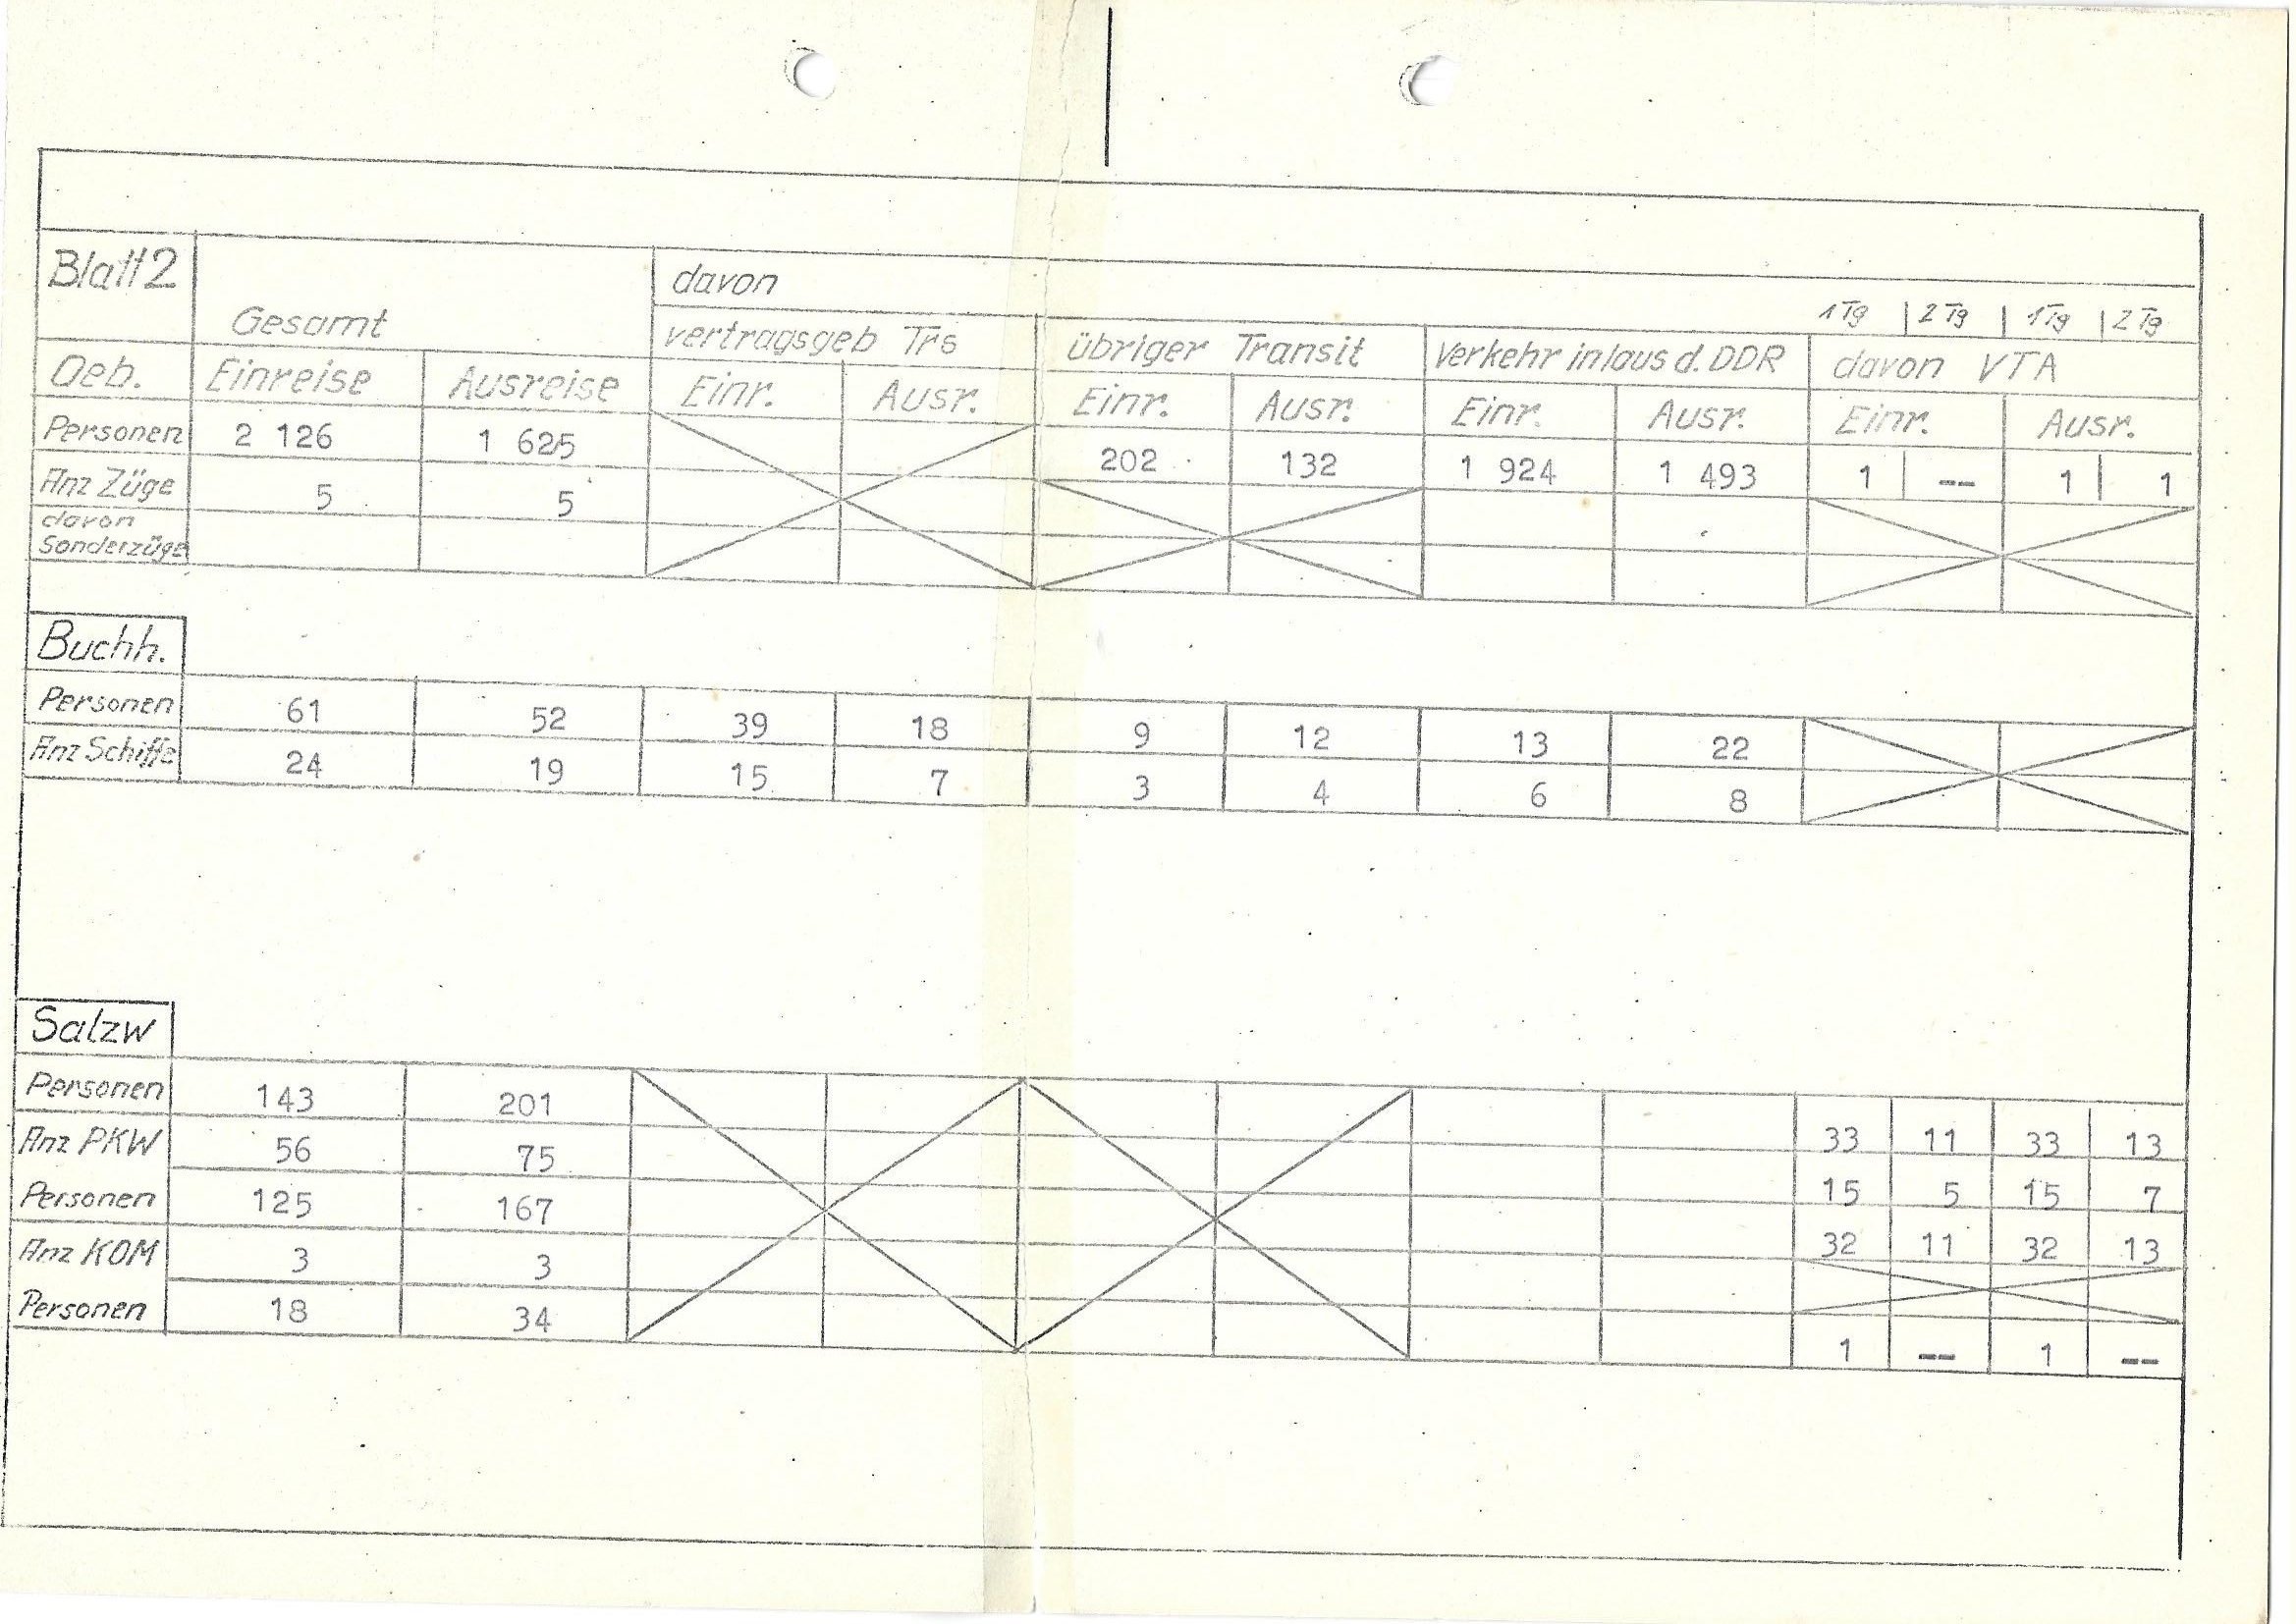 Blatt 2
Gesamt
davon
1 Tg | 2 Tg | 1 Tg | 2 Tg
vertragsgeb Trs übriger Transit Verkehr in/aus d. DDR davon VTA
Oeb. Einreise Ausreise Einr. Ausr. Einr. Ausr. Einr. Ausr. Einr. Ausr.
Personen 2 126 1 625 202 132 1 924 1 493 1 -- 1 1
Anz Züge 5 5
davon
Sonderzüge
Buchh.
Personen 61 52 39 18 9 12 13 22
Anz Schiffe 24 19 15 7 3 4 6 8
Salzw
Personen 143 201 33 11 33 13
Anz PKW 56 75 15 5 15 7
Personen 125 167 32 11 32 13
Anz KOM 3 3
Personen 18 34 1 -- 1 --